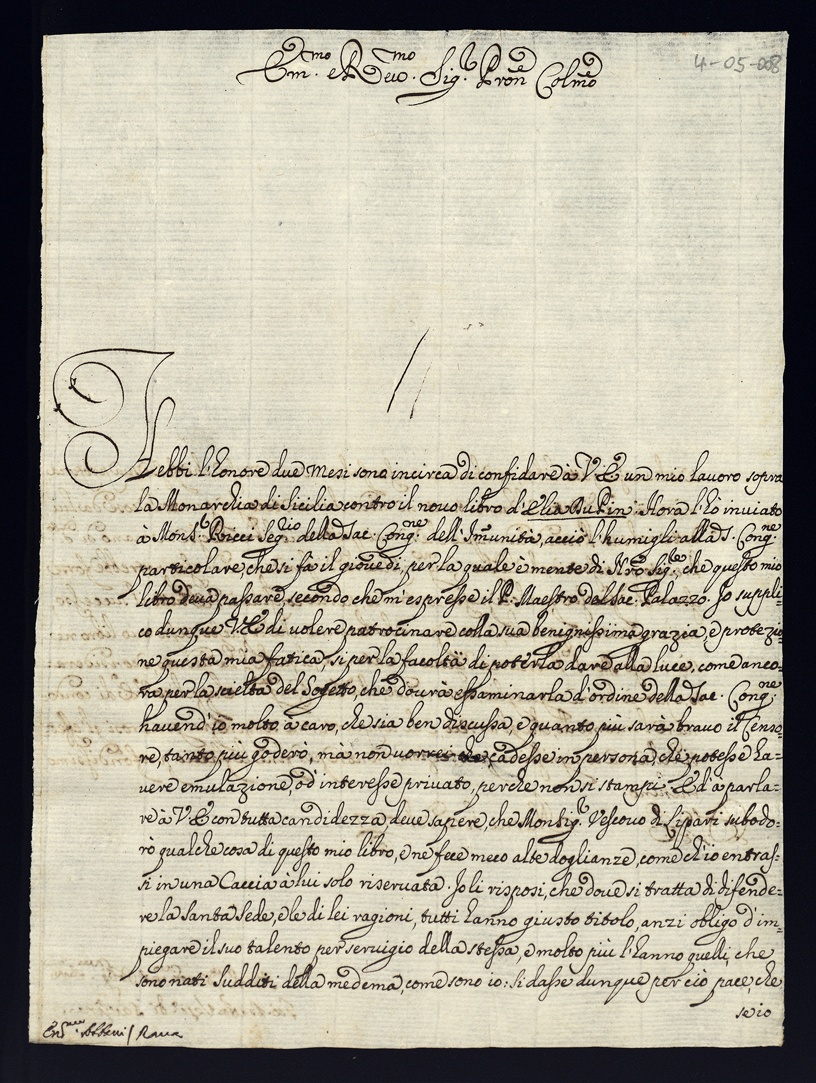 Em.mo e Rev.mo Sig.r Pron̄e Colmo
4-05-008
Hebbi l'honore due Mesi sono incirca di confidare à V E un mio lavoro sopra
la Monarchia di Sicilia contro il novo libro d'Elia DuPin. Hora l'hò inviato
à Mons.r Ricci Seg.rio della Sac. Cong.ne dell'Im̄unità, acciò l'humigli alla S. Cong.ne
particolare, che si fà il giovedì, per la quale è mente di Nr̄o Sig.re che questo mio
libro deva passare, secondo che m'espresse il P. Maestro del Sac. Palazzo. Io suppli-
co dunque V E di volere patrocinare colla sua benignissima grazia, e protezio-
ne questa mia fatica, si per la facoltà di poterla dare alla luce, come anco-
ra per la scielta del Sogetto, che dovrà essaminarla d'ordine della Sac. Cong.ne
havend'io molto à caro, che sia ben discussa, e quanto più sarà bravo il Censo-
re, tanto più goderò, mà non vorrei che cadesse in persona, che potesse ha-
vere emulazione, od' interesse privato, perche non si stampi. Ed' à parla-
re à V E con tutta candidezza, deve sapere, che Monsig.r Vescovo di Lipari subodo-
rò qualche cosa di questo mio libro, e ne fece meco alte doglianze, come ch'io entras-
si in una Caccia à lui solo riservata. Io li risposi, che dove si tratta di difende-
re la Santa Sede, e le di lei ragioni, tutti hanno giusto titolo, anzi obligo d'im-
piegare il suo talento per servigio della stessa, e molto più l'hanno quelli, che
sono nati Sudditi della medema, come sono io: si dasse dunque perciò pace, che
se io